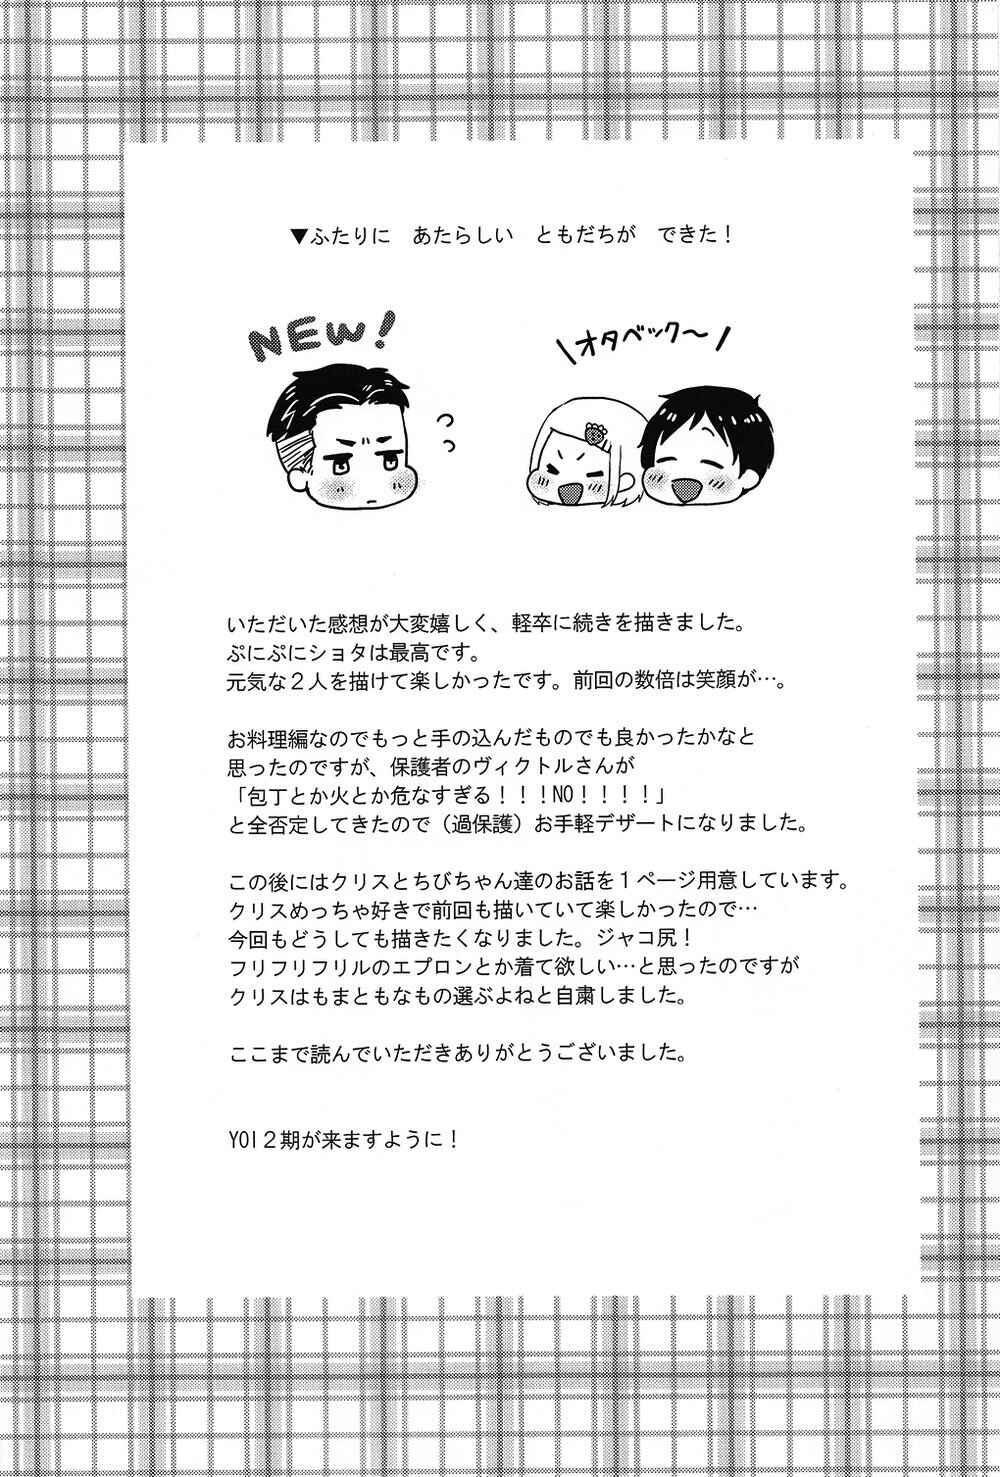 ▼ふたりに　あたらしい　ともだちが　できた！
NEW!
\オタベック～/
いただいた感想が大変嬉しく、軽卒に続きを描きました。
ぷにぷにショタは最高です。
元気な２人を描けて楽しかったです。前回の数倍は笑顔が…。
お料理編なのでもっと手の込んだものでも良かったかなと
思ったのですが、保護者のヴィクトルさんが
「包丁とか火とか危なすぎる！！！NO！！！！」
と全否定してきたので（過保護）お手軽デザートになりました。
この後にはクリスとちびちゃん達のお話を１ページ用意しています。
クリスめっちゃ好きで前回も描いていて楽しかったので…
今回もどうしても描きたくなりました。ジャコ尻！
フリフリフリルのエプロンとか着て欲しい…と思ったのですが
クリスはもまともなもの選ぶよねと自粛しました。
ここまで読んでいただきありがとうございました。
YOI２期が来ますように！